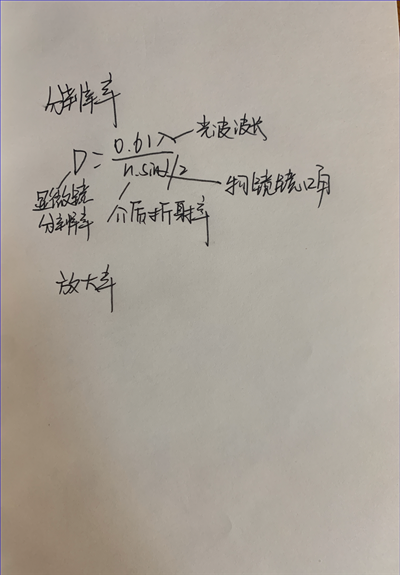 分辨率
光波波长
D = 0.61λ / n·sinα/2
显微镜
分辨率
介质折射率
物镜镜口角
放大率